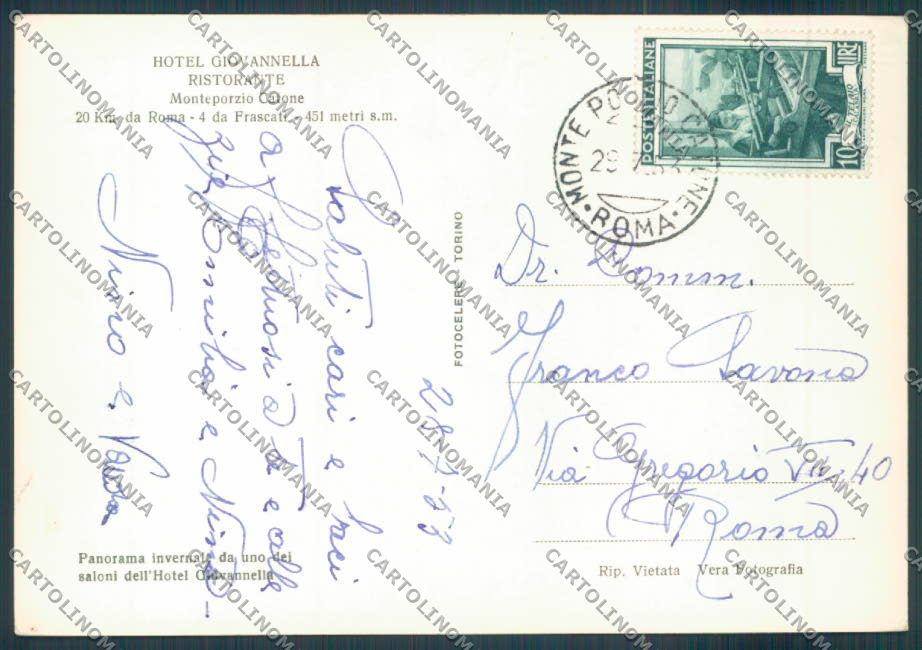 HOTEL GIOVANNELLA
RISTORANTE
Monteporzio Catone
20 Km. da Roma - 4 da Frascati - 451 metri s.m.
28-7-53
Saluti cari e baci
affettuosi a Te e alle
zie Emilia e Nina -
Nino e
Panorama invernale da uno dei
saloni dell'Hotel Giovannella
FOTOCELERE TORINO
POSTE ITALIANE
10
LIRE
MONTE PORZIO CATONE
ROMA
Dr. Comm.
Franco Savona
Via Gregorio VII, 40
Roma
Rip. Vietata Vera Fotografia
CARTOLINOMANIA